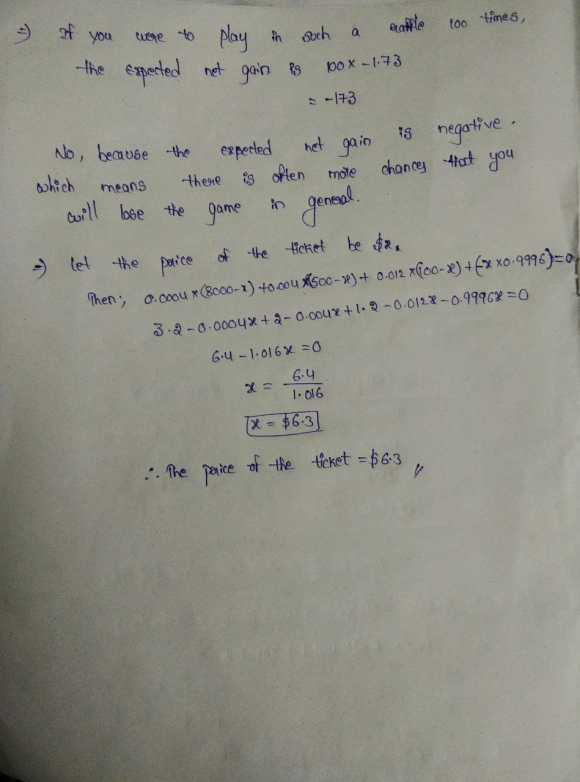 ⇒ If you were to play in such a raffle 100 times,
the expected net gain is 100 x -1.73
= -173
No, because the expected net gain is negative.
which means there is often more chances that you
will lose the game in general.
⇒ Let the price of the ticket be $x.
Then:, 0.0004 x (8000-x) + 0.004 x (500-x) + 0.012 x (100-x) + (-x x 0.9996) = 0
3.2 - 0.0004x + 2 - 0.004x + 1.2 - 0.012x - 0.9996x = 0
6.4 - 1.016x = 0
x = 6.4 / 1.016
x = $6.3
∴ The price of the ticket = $6.3